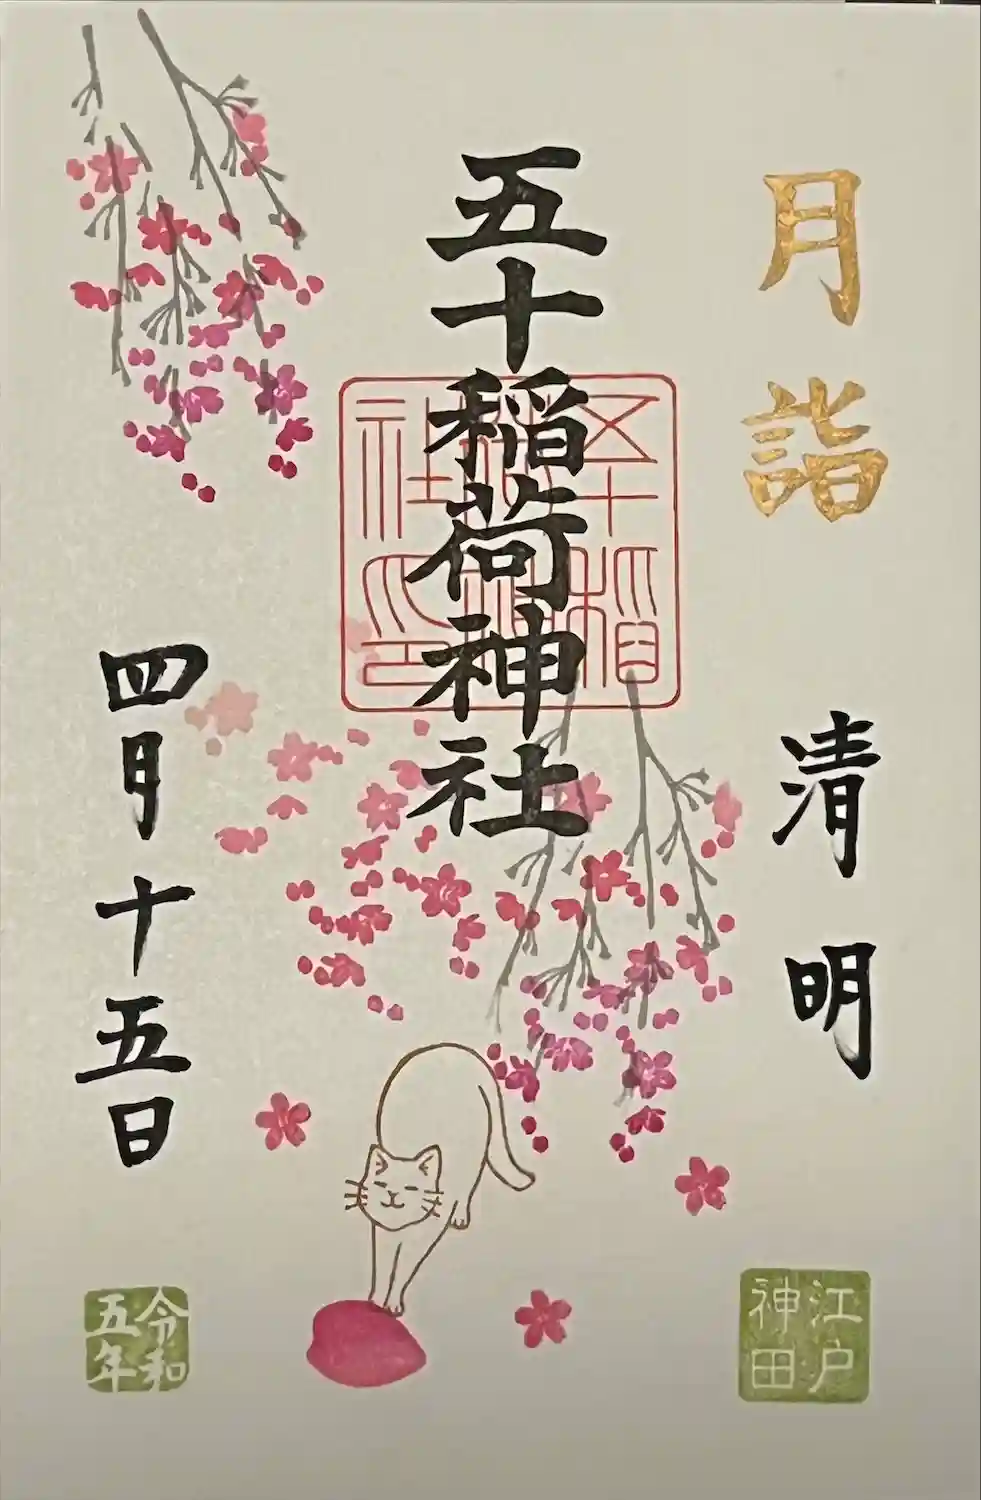 月詣
清明
江戸
神田
五十稲荷神社
五十稲
荷神
社印
四月十五日
令和
五年